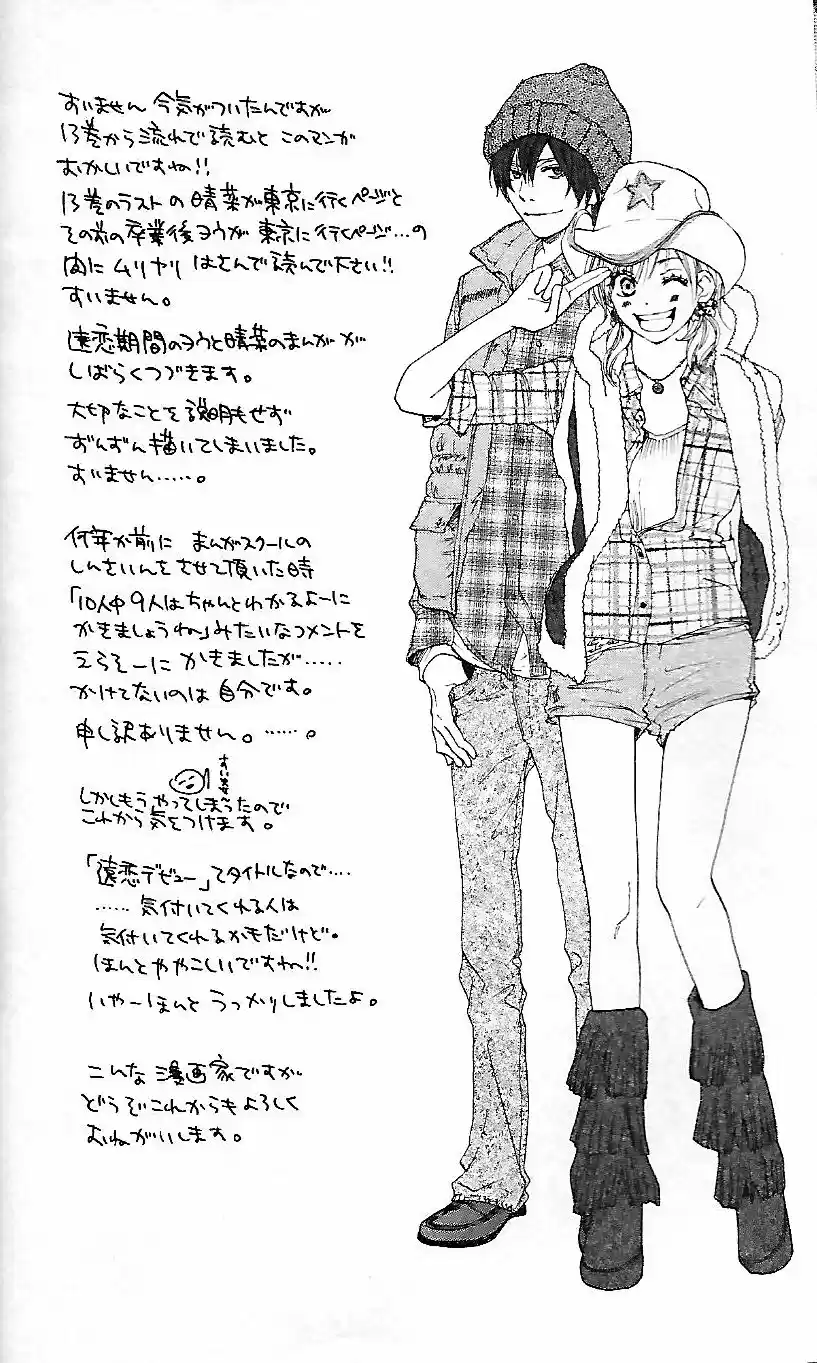 すいません 今気がついたんですが
13巻から流れで読むと このマンガ
おかしいですね!!
13巻のラストの晴菜が東京に行くページと
その前の卒業後ヨウが東京に行くページ…の
間に ムリヤリ はさんで読んで下さい!!
すいません。
遠恋期間のヨウと晴菜のまんがが
しばらくつづきます。
大切なことを説明もせず
ずんずん描いてしまいました。
すいません……。
何年か前に まんがスクールの
しんさいんを させて頂いた時
「10人中9人はちゃんとわかるよーに
かきましょうね」みたいなコメントを
えらそーに かきましたが……
かけてないのは 自分です。
申し訳ありません。……。
しかしもうやってしまったので
これから気をつけます。
「遠恋デビュー」てタイトルなので…
……気付いてくれる人は
気付いてくれるかもだけど。
ほんとややこしいですね!!
いやーほんと うっかりしましたよ。
こんな 漫画家ですが
どうぞこれからもよろしく
おねがいします。